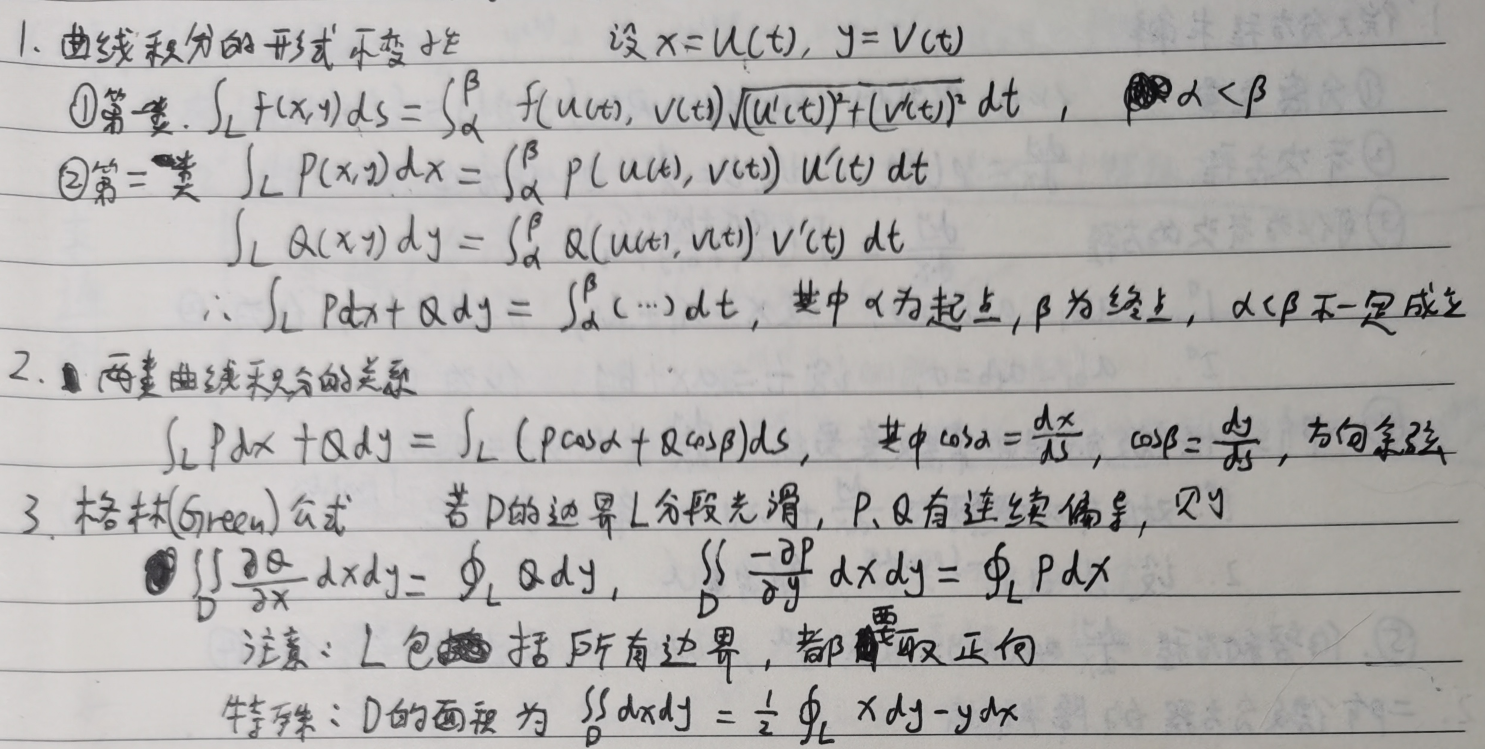 1. 曲线积分的形式不变性 设 x=u(t), y=v(t)
①第一类. ∫_L f(x,y)ds = ∫_α^β f(u(t), v(t))√((u'(t))²+(v'(t))²) dt , α<β
②第二类 ∫_L P(x,y)dx = ∫_α^β P(u(t), v(t)) u'(t) dt
∫_L Q(x,y)dy = ∫_α^β Q(u(t), v(t)) v'(t) dt
∴ ∫_L Pdx+Qdy = ∫_α^β (…)dt, 其中 α为起点, β为终点, α<β不一定成立
2. 两类曲线积分的关系
∫_L Pdx+Qdy = ∫_L (Pcosα+Qcosβ)ds, 其中cosα=dx/ds, cosβ=dy/ds, 方向余弦
3. 格林(Green)公式 若D的边界L分段光滑, P、Q有连续偏导, 则
∬_D ∂Q/∂x dxdy = ∮_L Qdy, ∬_D -∂P/∂y dxdy = ∮_L Pdx
注意: L包括所有边界, 都要取正向
特殊: D的面积为 ∬_D dxdy = 1/2 ∮_L xdy-ydx